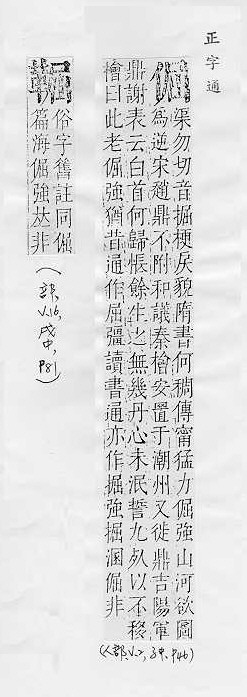 正字通
倔
渠勿切音掘梗戾貌隋書何稠傳甯猛力倔強山河欲圖
為逆宋趙鼎不附和議秦檜安置于潮州又徙鼎吉陽軍
鼎謝表云白首何歸悵餘生之無幾丹心未泯誓九死以不移
檜曰此老倔強猶昔通作屈彊讀書通亦作掘強掘淈倔非
(人部,V.2,子中,P46)
俗字舊註同倔
篇海倔強𠀤非
(部,V.16,戌中,P81)